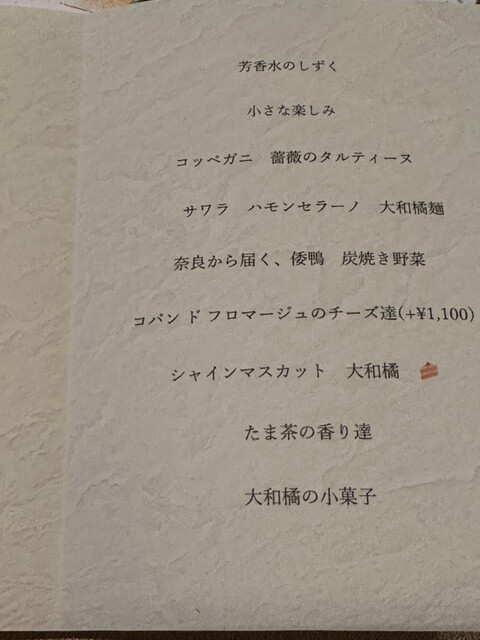 芳香水のしずく
小さな楽しみ
コッペガニ　薔薇のタルティーヌ
サワラ　ハモンセラーノ　大和橘麺
奈良から届く、倭鴨　炭焼き野菜
コパン ド フロマージュのチーズ達(+¥1,100)
シャインマスカット　大和橘
たま茶の香り達
大和橘の小菓子